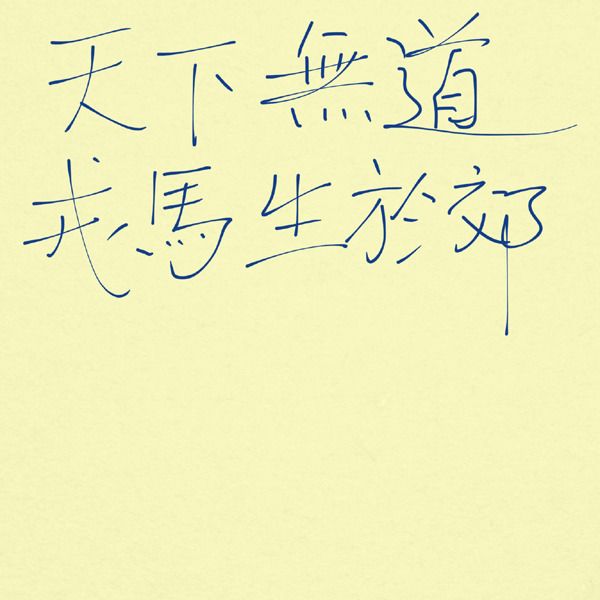 天下無道
戎馬生於郊